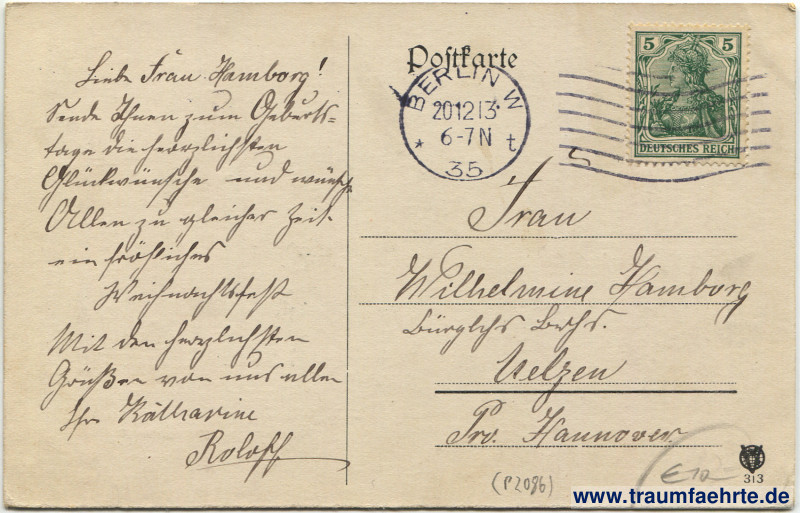 Liebe Frau Hamborg!
Sende Ihnen zum Geburts-
tage die herzlichsten
Glückwünsche und wünsche
Allen zu gleicher Zeit
ein fröhliches
Weihnachtsfest
Mit den herzlichsten
Grüßen von uns allen
Ihre Katharine
Roloff
Postkarte
BERLIN W
20.12.13
6-7N
* t
35
5 5
DEUTSCHES REICH
Frau
Wilhelmine Hamborg
Uelzen
Prv. Hannover
(P2086)
313
www.traumfaehrte.de